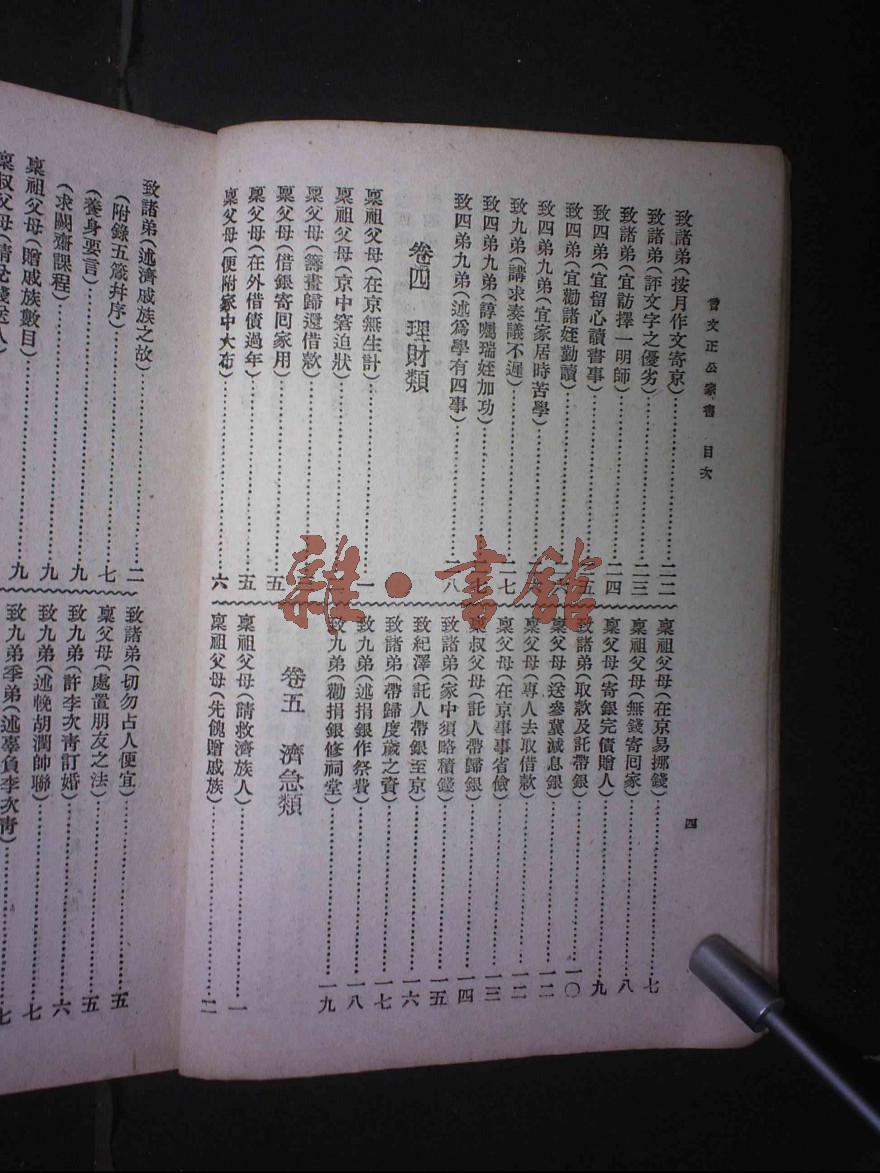 曾文正公家書 目次
四
致諸弟(按月作文寄京)…………二二
致諸弟(評文字之優劣)…………二三
致諸弟(宜訪擇一明師)…………二四
致四弟(宜留心讀書事)…………五
致四弟(宜勸諸姪勤讀)…………
致四弟九弟(宜家居時苦學)…………
致九弟(講求奏議不遲)…………二七
致四弟九弟(諄囑瑞姪加功)…………七
致四弟九弟(述爲學有四事)…………二八
卷四 理財類
稟祖父母(在京無生計)…………一
稟祖父母(京中窘迫狀)…………
稟父母(籌畫歸還借款)…………
稟父母(借銀寄囘家用)…………五
稟父母(在外借債過年)…………五
稟父母(便附家中大布)…………六
稟祖父母(在京易挪錢)…………七
稟祖父母(無錢寄囘家)…………八
稟父母(寄銀完債贈人)…………九
致諸弟(取款及託帶銀)…………一〇
稟父母(送參冀減息銀)…………一二
稟父母(專人去取借款)…………一二
稟父母(在京事事省儉)…………一三
稟叔父母(託人帶歸銀)…………一四
致諸弟(家中須略積錢)…………一五
致紀澤(託人帶銀至京)…………一六
致諸弟(帶歸度歲之資)…………一七
致九弟(述捐銀作祭費)…………一八
致九弟(勸捐銀修祠堂)…………一九
卷五 濟急類
稟祖父母(請救濟族人)…………一
稟祖父母(先餽贈戚族)…………二
致諸弟(述濟戚族之故)…………二
(附錄五箴幷序)…………七
(養身要言)…………九
(求闕齋課程)…………九
稟祖父母(贈戚族數目)…………九
稟叔父母(請
致諸弟(切勿占人便宜)…………五
稟父母(處置朋友之法)…………五
致九弟(許李次青訂婚)…………六
致九弟(述輓胡潤帥聯)…………七
致九弟季弟(述辜負李次青)…………七
雜·書館